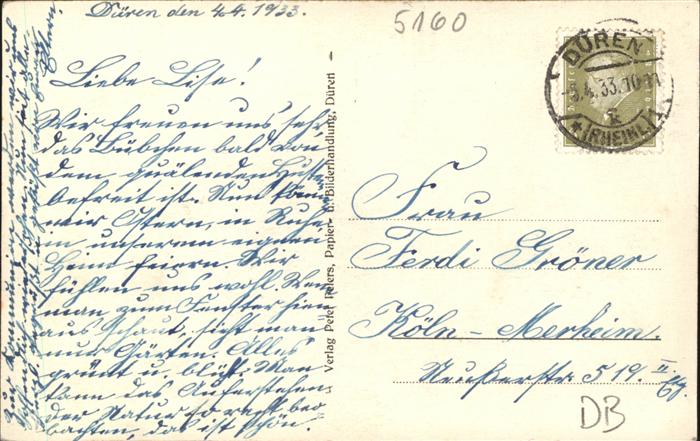 Düren den 4.4.1933.
5160
Liebe Lise!
Wir freuen uns sehr
das Bübchen bald von
dem quälenden Husten
befreit ist. Nun kann
wir Ostern, in Ruhe
in unserem eigenen
Heim feiern. Wir
fühlen uns wohl. Wenn
man zum Fenster hin
aus schaut, sieht man
nur Gärten. Alles
grünt u. blüht. Man
kann das Auferstehen
der Natur so recht beo-
bachten, das ist schön.
Verlag Peter Peters, Papier- u. Bilderhandlung, Düren
DÜREN
-5.4.33.10-11
k
(RHEINL)
Frau
Ferdi Gröner
Köln-Merheim.
Neußerstr. 519. II
DB